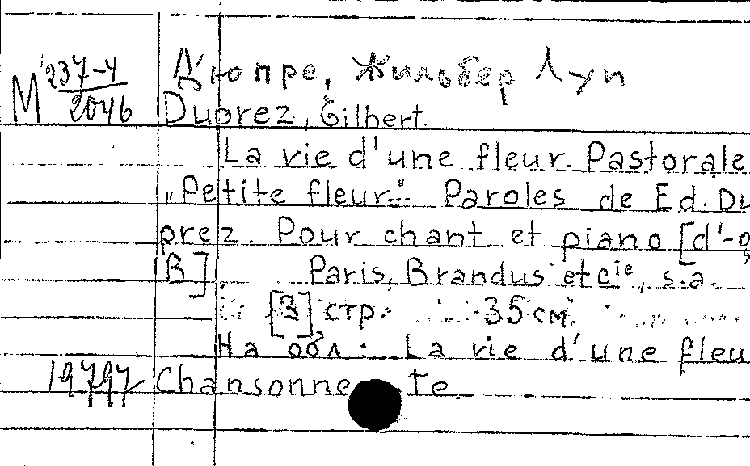 М 237-4/2046 Дюпре, Жильбер Луи
Duprez, Gilbert.
La vie d'une fleur. Pastorale
„Petite fleur." Paroles de Ed. Du
prez. Pour chant et piano [d'-
B] Paris, Brandus et cie, s.a.
[3] стр. 35 см.
На обл.: La vie d'une fleu
19797 Chansonne te